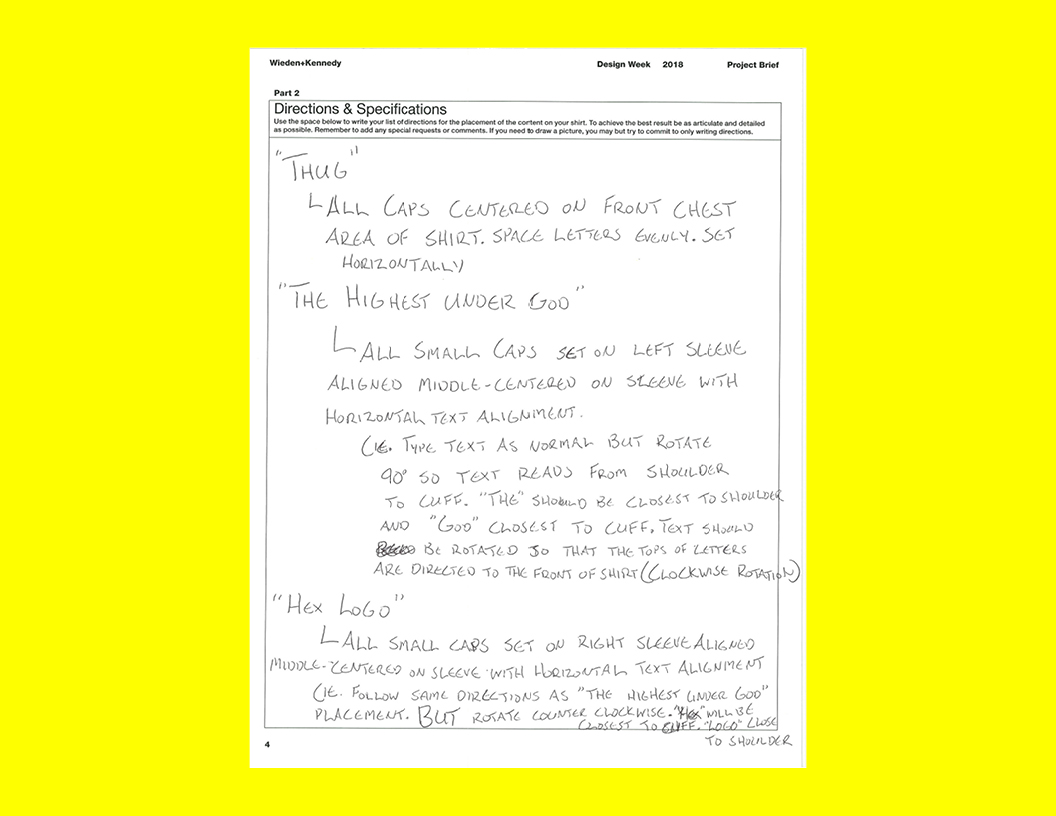 Wieden+Kennedy Design Week 2018 Project Brief
Part 2
Directions & Specifications
Use the space below to write your list of directions for the placement of the content on your shirt. To achieve the best result be as articulate and detailed
as possible. Remember to add any special requests or comments. If you need to draw a picture, you may but try to commit to only writing directions.
"THUG"
ALL CAPS CENTERED ON FRONT CHEST
AREA OF SHIRT. SPACE LETTERS EVENLY. SET
HORIZONTALLY
"THE HIGHEST UNDER GOD"
ALL SMALL CAPS SET ON LEFT SLEEVE
ALIGNED MIDDLE-CENTERED ON SLEEVE WITH
HORIZONTAL TEXT ALIGNMENT.
(IE. TYPE TEXT AS NORMAL BUT ROTATE
90° SO TEXT READS FROM SHOULDER
TO CUFF. "THE" SHOULD BE CLOSEST TO SHOULDER
AND "GOD" CLOSEST TO CUFF. TEXT SHOULD
BE ROTATED SO THAT THE TOPS OF LETTERS
ARE DIRECTED TO THE FRONT OF SHIRT (CLOCKWISE ROTATION)
"HEX LOGO"
ALL SMALL CAPS SET ON RIGHT SLEEVE ALIGNED
MIDDLE-CENTERED ON SLEEVE WITH HORIZONTAL TEXT ALIGNMENT
(IE. FOLLOW SAME DIRECTIONS AS "THE HIGHEST UNDER GOD"
PLACEMENT. BUT ROTATE COUNTER CLOCKWISE. "HEX" WILL BE
CLOSEST TO CUFF. "LOGO" CLOSE
TO SHOULDER
4